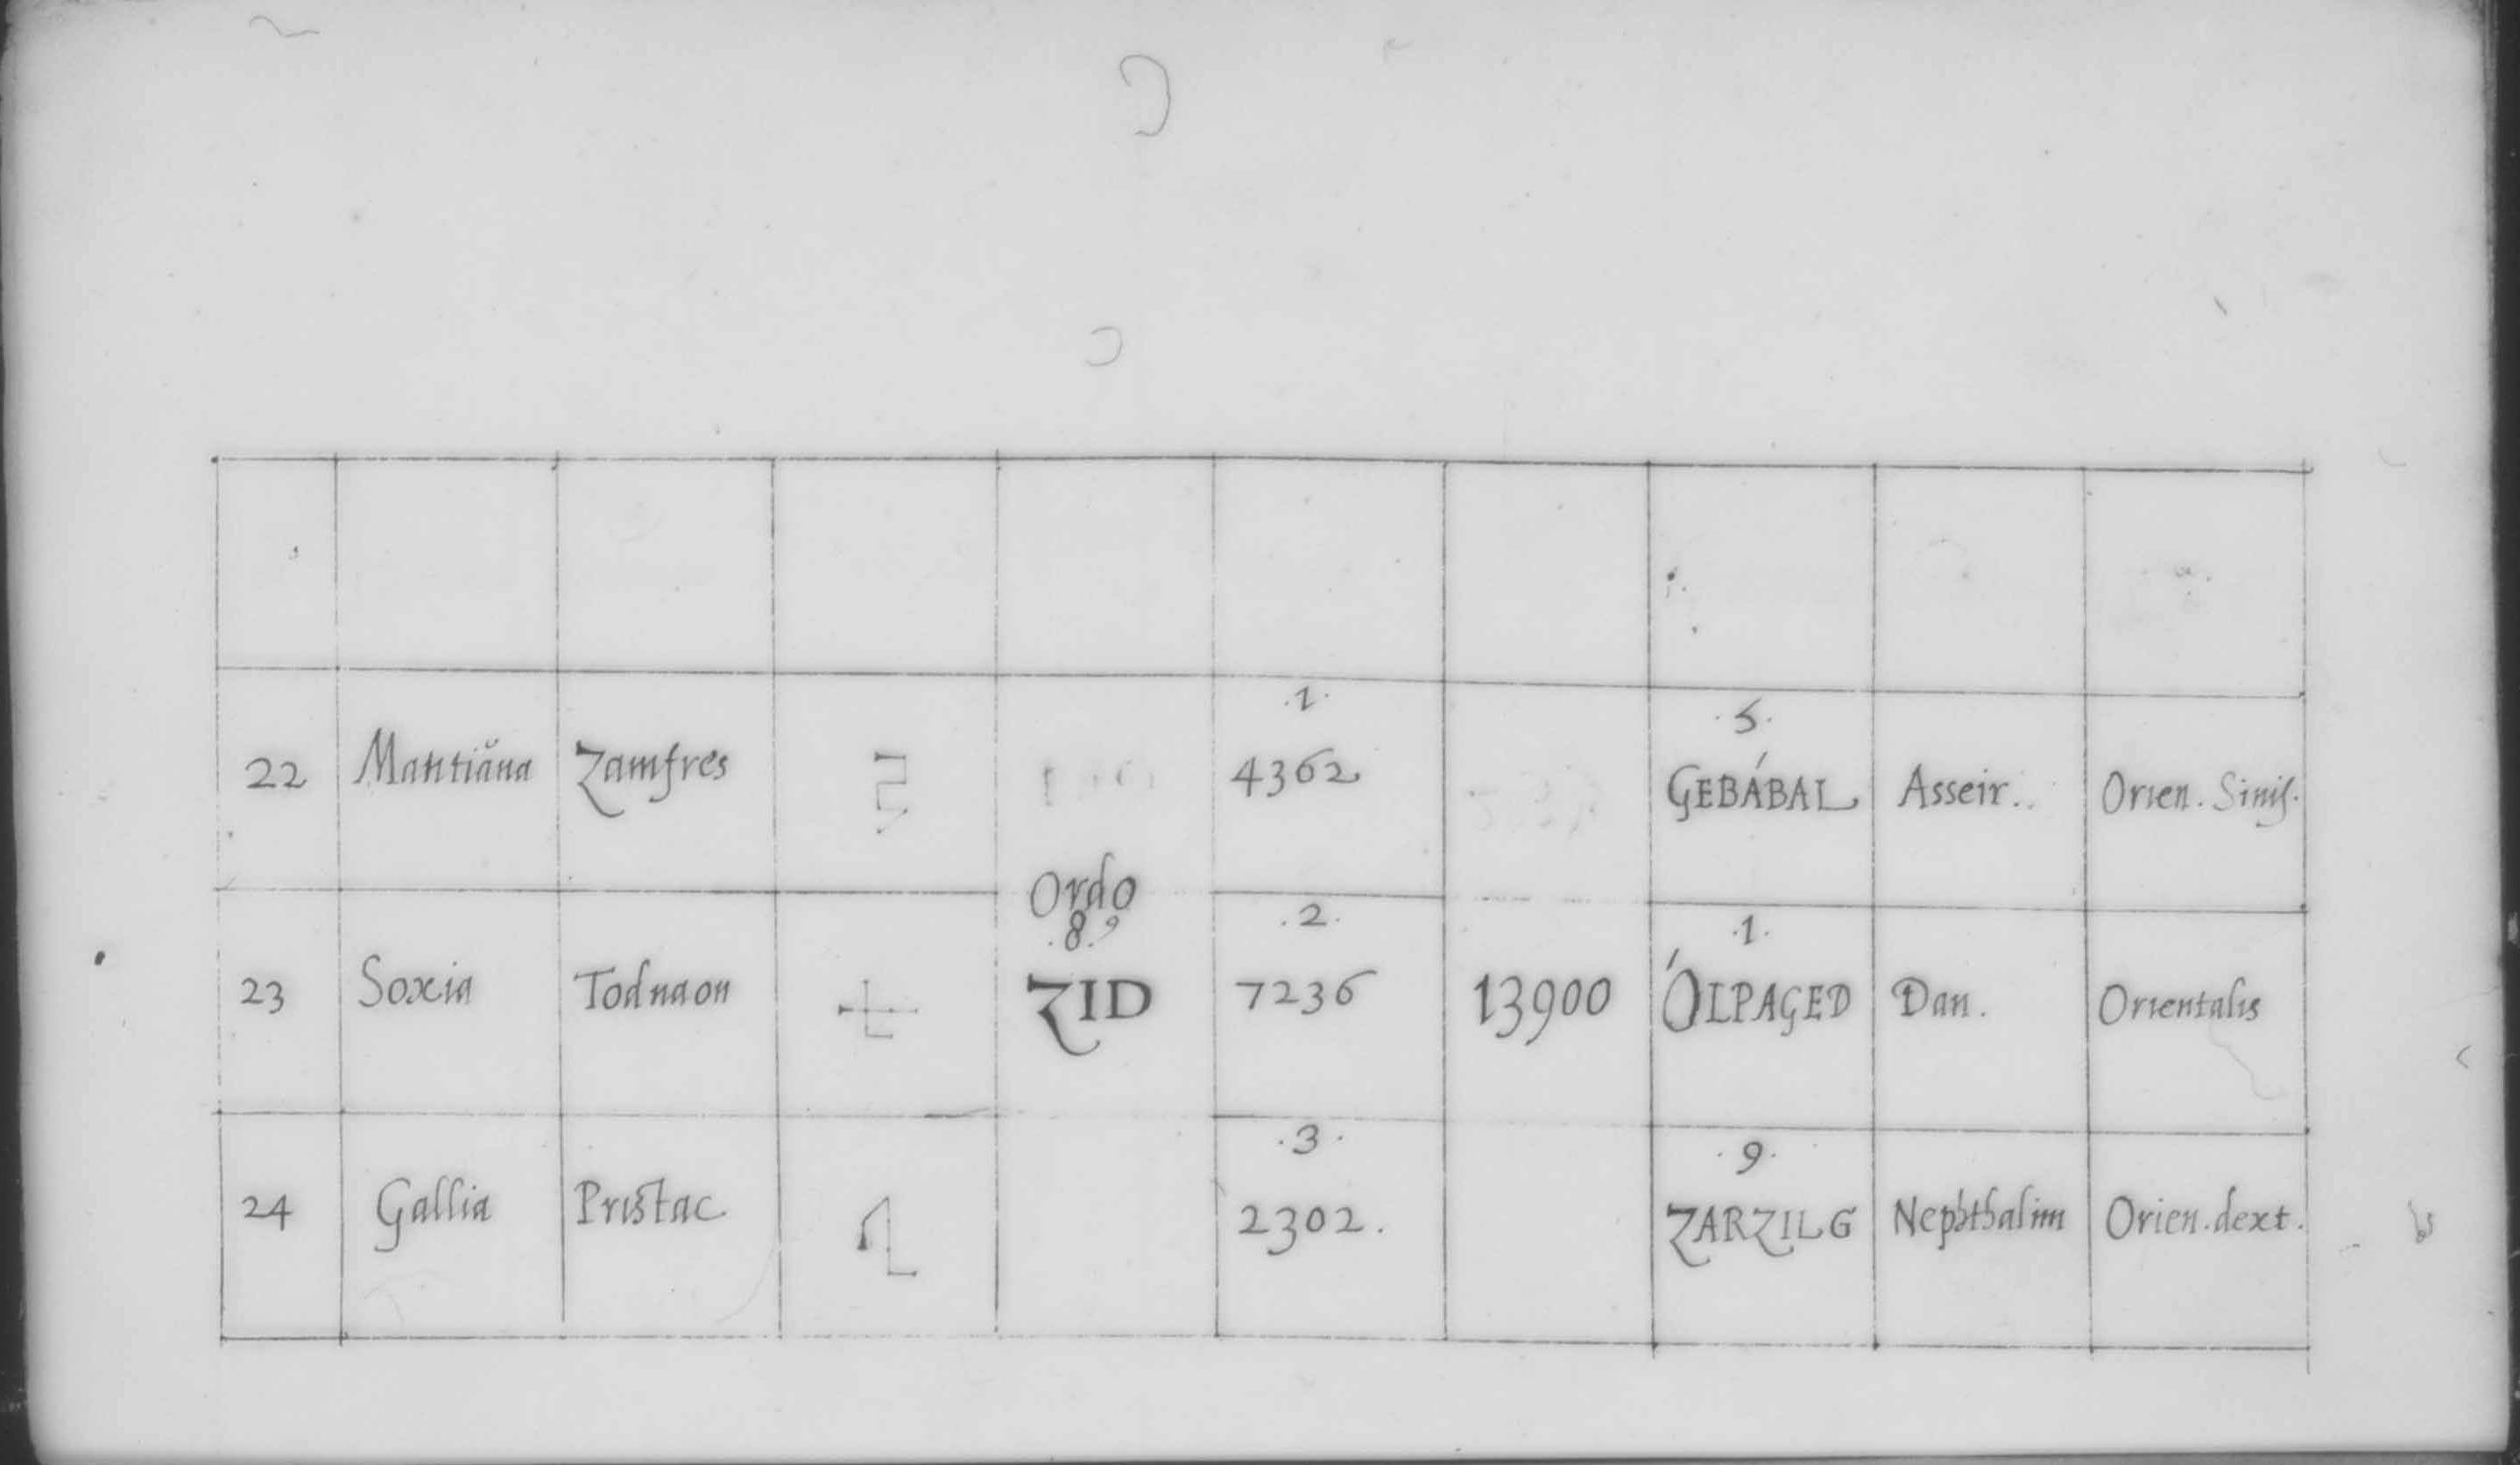 22 Mantiăna Zamfres .1. 4362 .5. GEBÁBAL Asseir.. Orien. Sinis.
Ordo .8.⁹ ZID 13900
23 Soxia Todnaon .2. 7236 .1. ÓLPAGED Dan. Orientalis
24 Gallia Pristac .3. 2302. .9. ZARZILG Nephthalim Orien. dext.